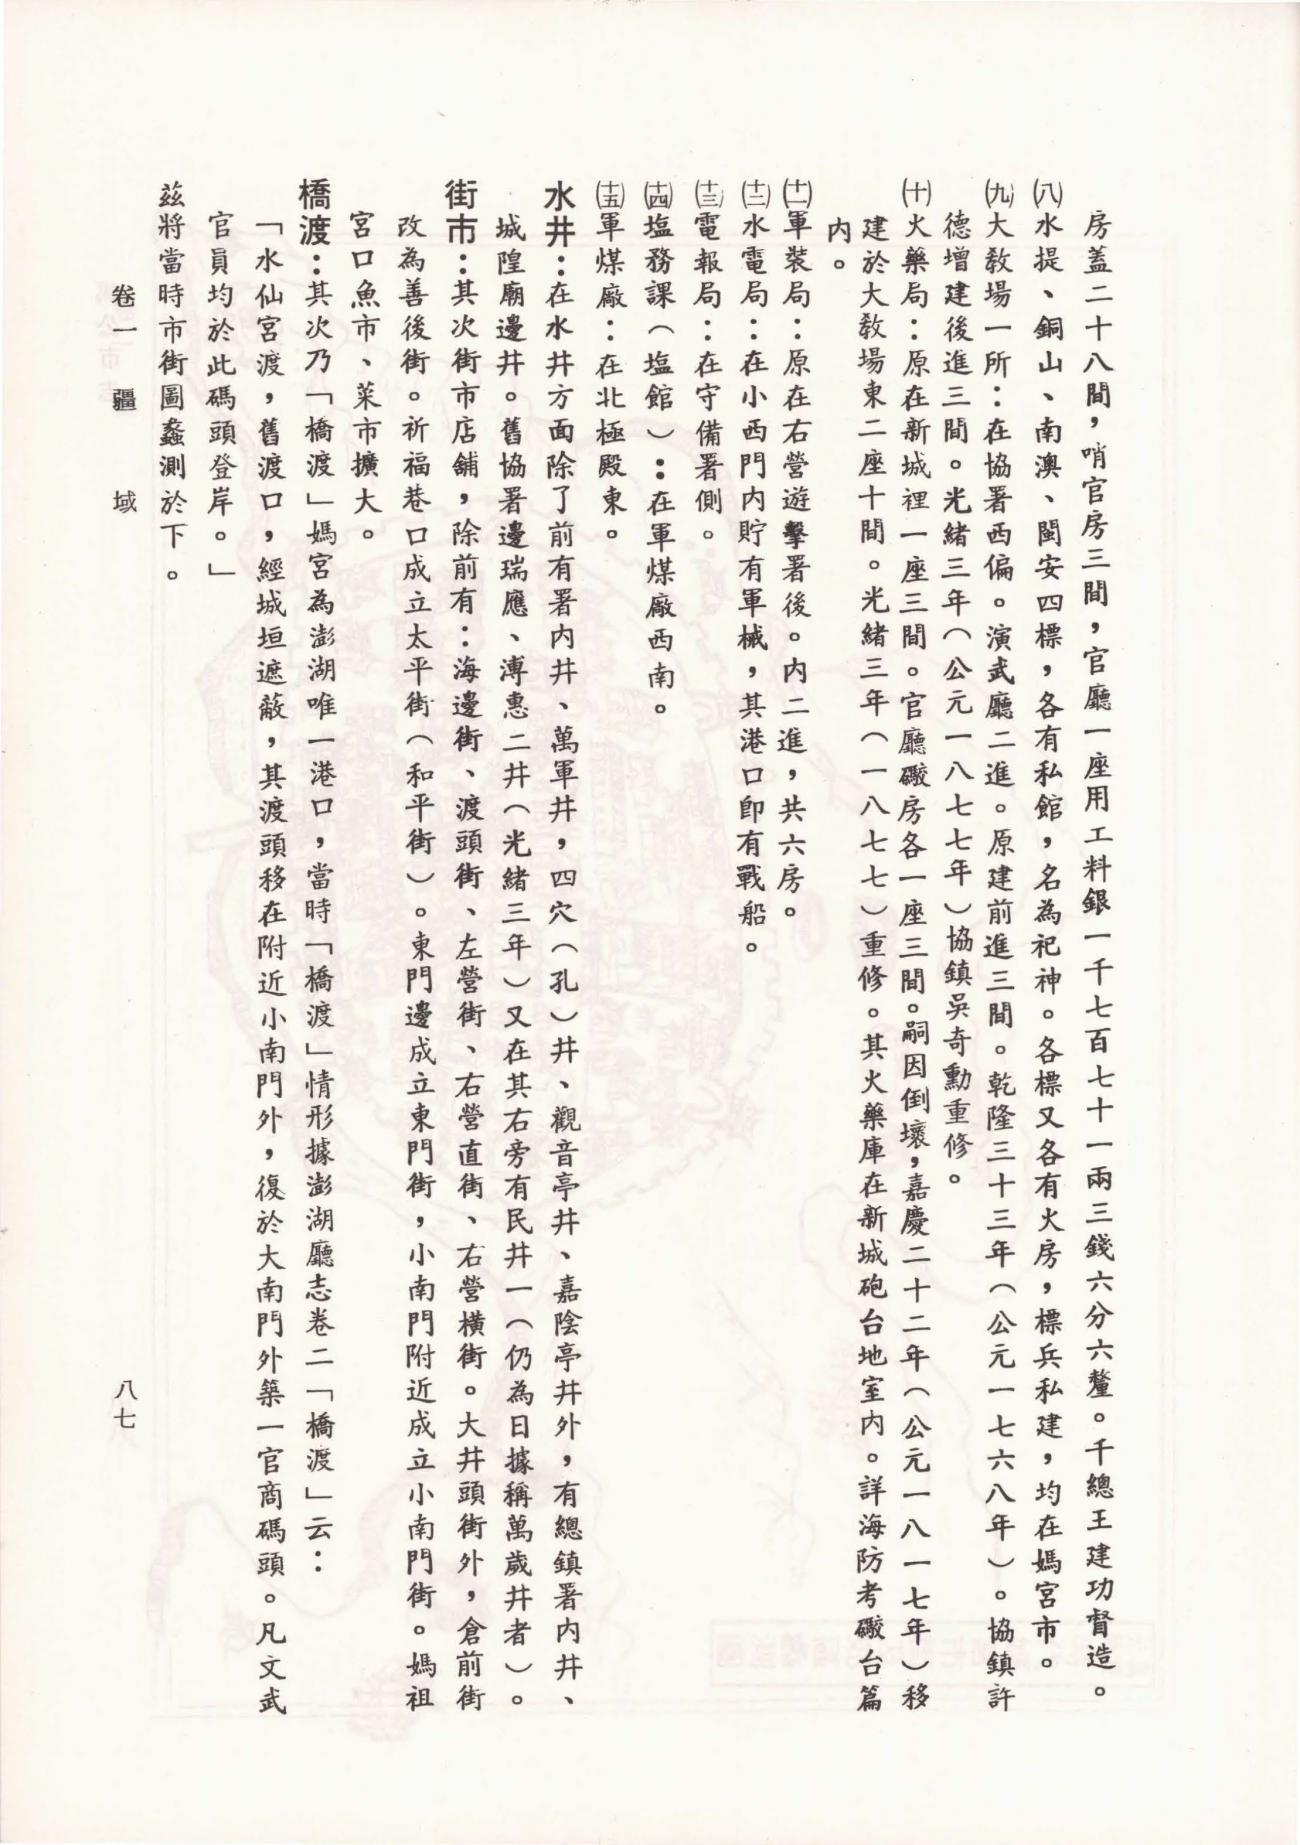 房蓋二十八間，哨官房三間，官廳一座用工料銀一千七百七十一兩三錢六分六釐。千總王建功督造。
㈧水提、銅山、南澳、閩安四標，各有私館，名為祀神。各標又各有火房，標兵私建，均在媽宮市。
㈨大教場一所：在協署西偏。演武廳二進。原建前進三間。乾隆三十三年（公元一七六八年）。協鎮許
德增建後進三間。光緒三年（公元一八七七年）協鎮吳奇勳重修。
㈩火藥局：原在新城裡一座三間。官廳礮房各一座三間。嗣因倒壞，嘉慶二十二年（公元一八一七年）移
建於大教場東二座十間。光緒三年（一八七七）重修。其火藥庫在新城砲台地室內。詳海防考礮台篇
內。
(十一)軍裝局：原在右營遊擊署後。內二進，共六房。
(十二)水電局：在小西門內貯有軍械，其港口卽有戰船。
(十三)電報局：在守備署側。
(十四)塩務課（塩館）：在軍煤廠西南。
(十五)軍煤廠：在北極殿東。
水井：在水井方面除了前有署内井、萬軍井，四穴（孔）井、觀音亭井、嘉陰亭井外，有總鎮署内井、
城隍廟邊井。舊協署邊瑞應、溥惠二井（光緒三年）又在其右旁有民井一（仍為日據稱萬歲井者）。
街市：其次街市店舖，除前有：海邊街、渡頭街、左營街、右營直街、右營橫街。大井頭街外，倉前街
改為善後街。祈福巷口成立太平街（和平街）。東門邊成立東門街，小南門附近成立小南門街。媽祖
宮口魚市、菜市擴大。
橋渡：其次乃「橋渡」媽宮為澎湖唯一港口，當時「橋渡」情形據澎湖廳志卷二「橋渡」云：
「水仙宮渡，舊渡口，經城垣遮蔽，其渡頭移在附近小南門外，復於大南門外築一官商碼頭。凡文武
官員均於此碼頭登岸。」
茲將當時市街圖蠡測於下。
卷一　疆　域
八七